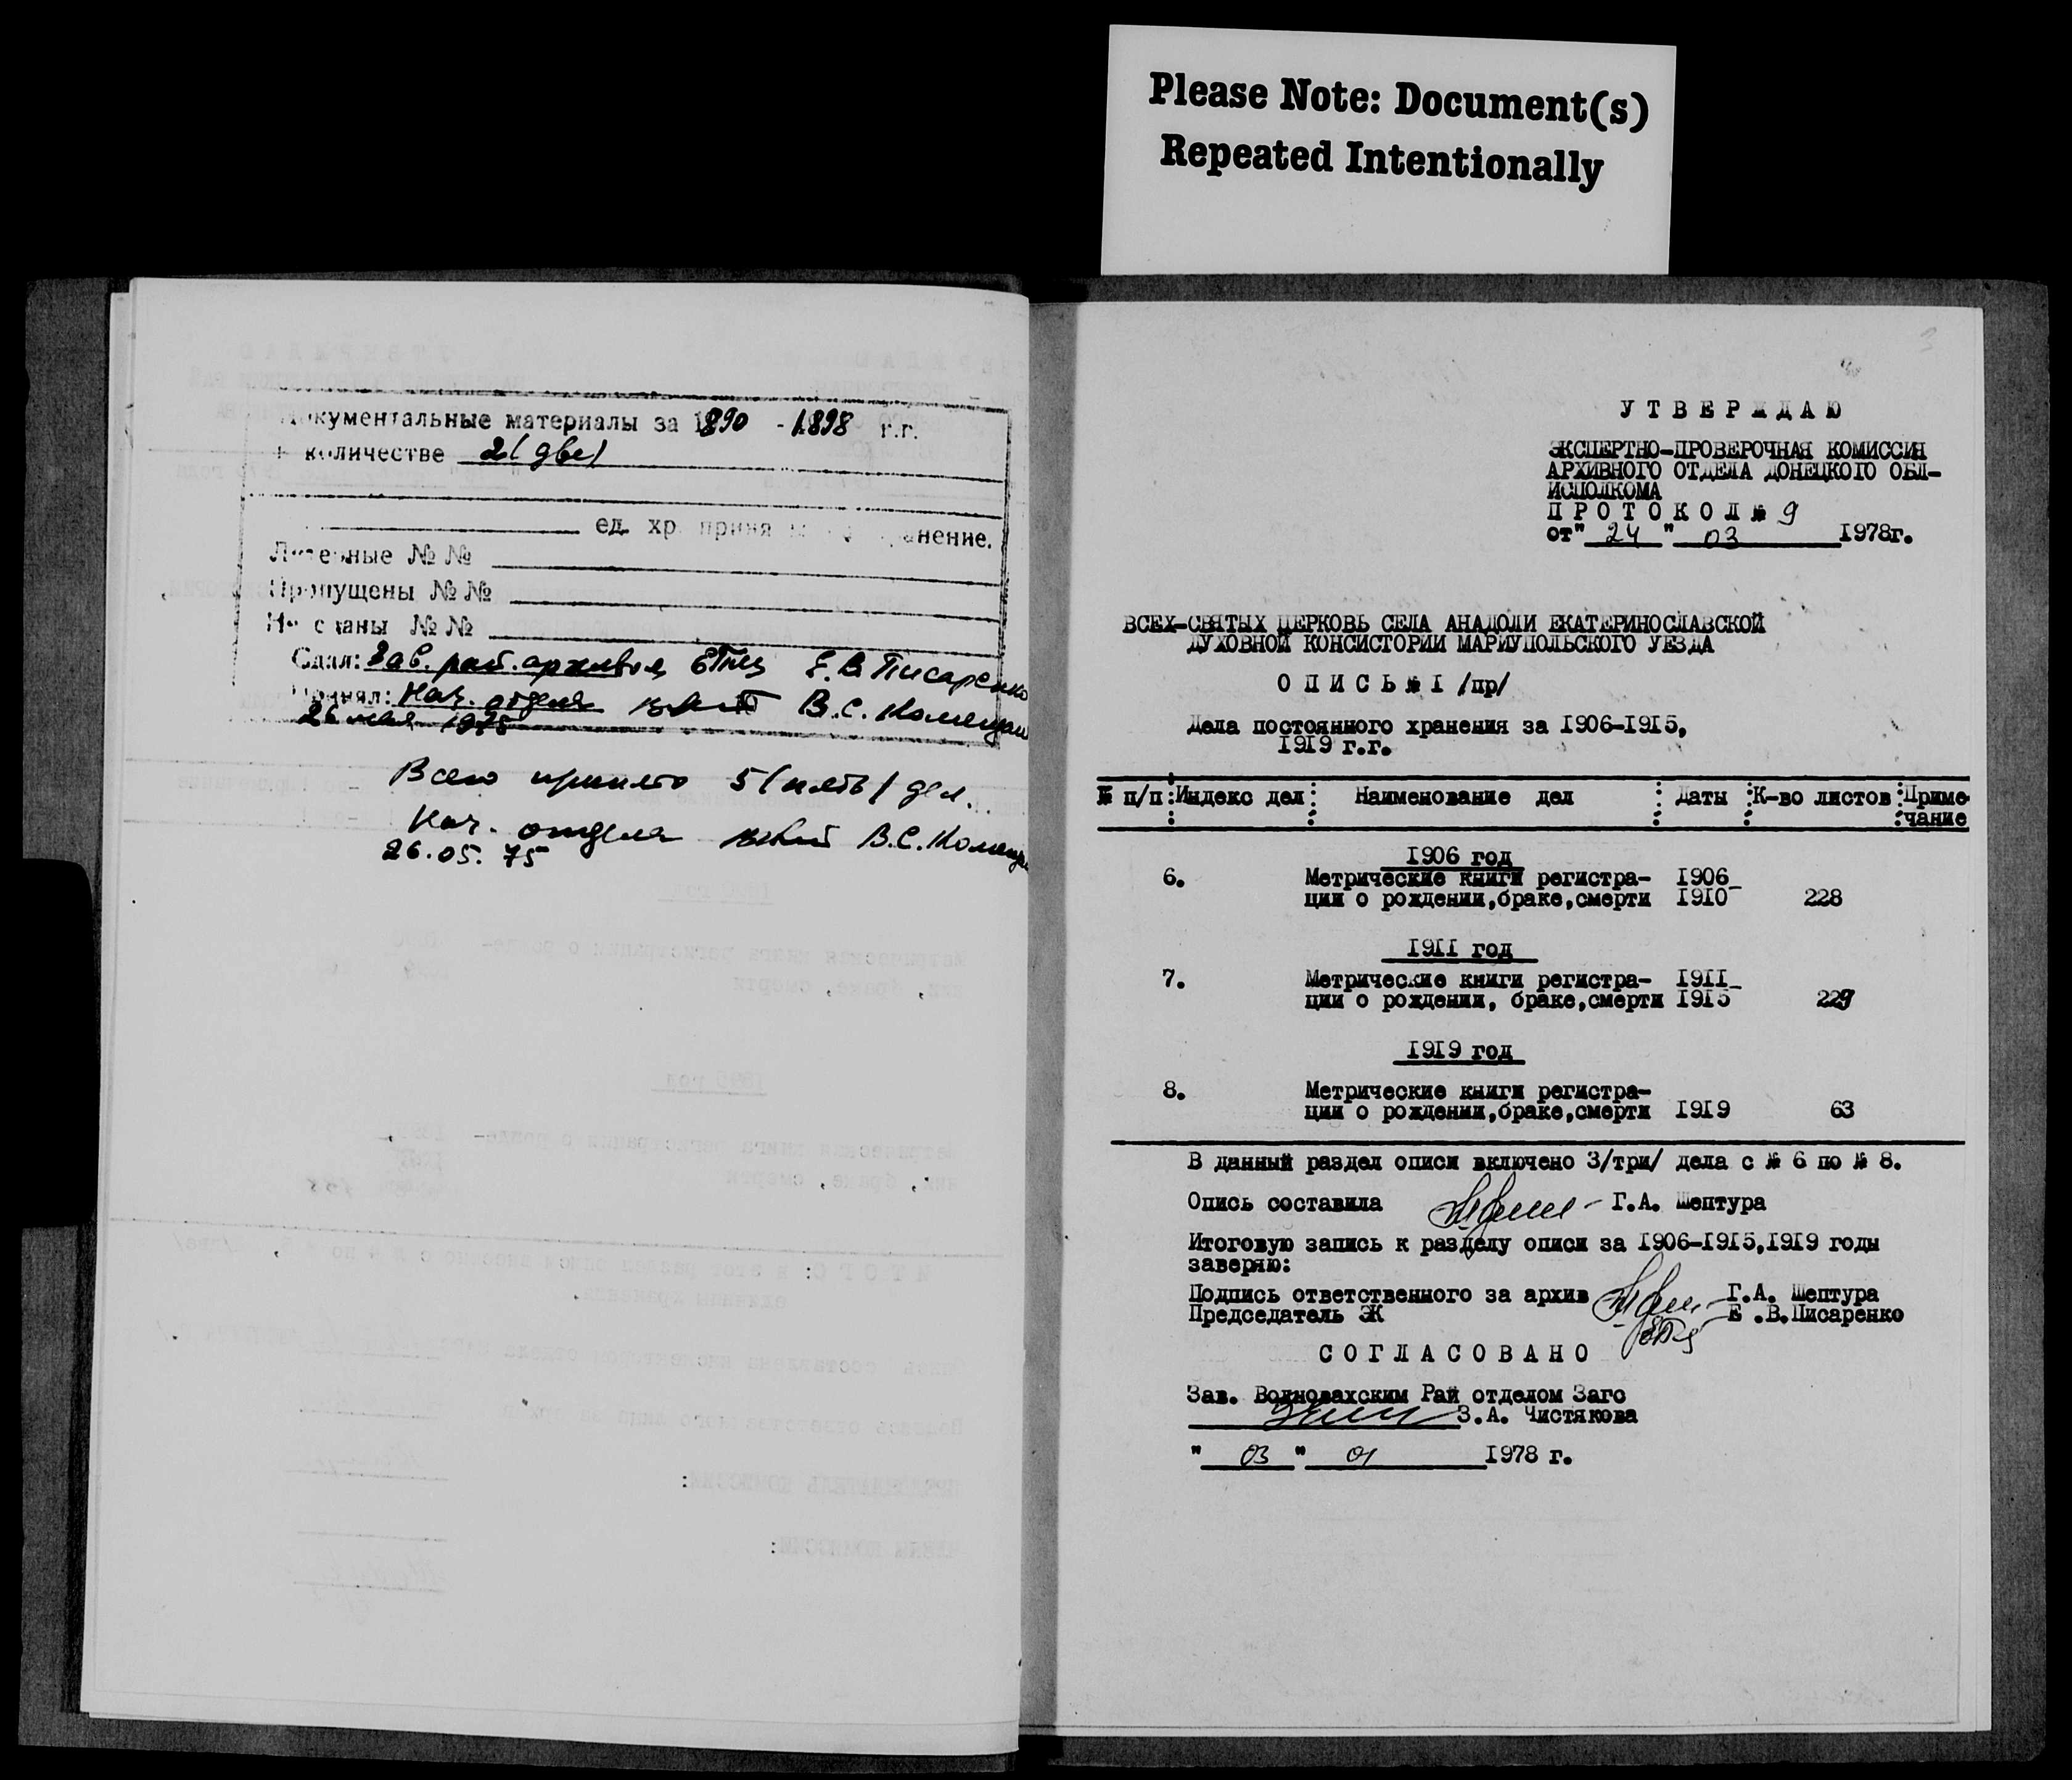 Please Note: Document(s)
Repeated Intentionally
Документальные материалы за 1890 - 1898 г.г.
в количестве 2 (две)
ед. хр. принял на хранение.
Литерные №№
Пропущены №№
Не сданы №№
Сдал: Зав. рай. архивом Е.В. Писаренко
Принял: Нач. отдела В.С.
26 мая 1975
Всего принято 5 (пять) дел.
Нач. отдела В.С.
26.05.75
3
УТВЕРЖДАЮ
ЭКСПЕРТНО-ПРОВЕРОЧНАЯ КОМИССИЯ
АРХИВНОГО ОТДЕЛА ДОНЕЦКОГО ОБЛ-
ИСПОЛКОМА
ПРОТОКОЛ № 9
от "24" 03 1978г.
ВСЕХ-СВЯТЫХ ЦЕРКОВЬ СЕЛА АНАДОЛИ ЕКАТЕРИНОСЛАВСКОЙ
ДУХОВНОЙ КОНСИСТОРИИ МАРИУПОЛЬСКОГО УЕЗДА
ОПИСЬ № I /пр/
Дела постоянного хранения за 1906-1915,
1919 г.г.
№ п/п : Индекс дел : Наименование дел : Даты : К-во листов : Приме-
чание
1906 год
6. Метрические книги регистра- 1906-
ции о рождении, браке, смерти 1910 228
1911 год
7. Метрические книги регистра- 1911-
ции о рождении, браке, смерти 1915 229
1919 год
8. Метрические книги регистра-
ции о рождении, браке, смерти 1919 63
В данный раздел описи включено 3/три/ дела с № 6 по № 8.
Опись составила Г.А. Шептура
Итоговую запись к разделу описи за 1906-1915,1919 годы
заверяю:
Подпись ответственного за архив Г.А. Шептура
Председатель ЭК Е.В.Писаренко
СОГЛАСОВАНО
Зав. Волновахским Рай отделом Загс
З.А. Чистякова
"03" 01 1978 г.